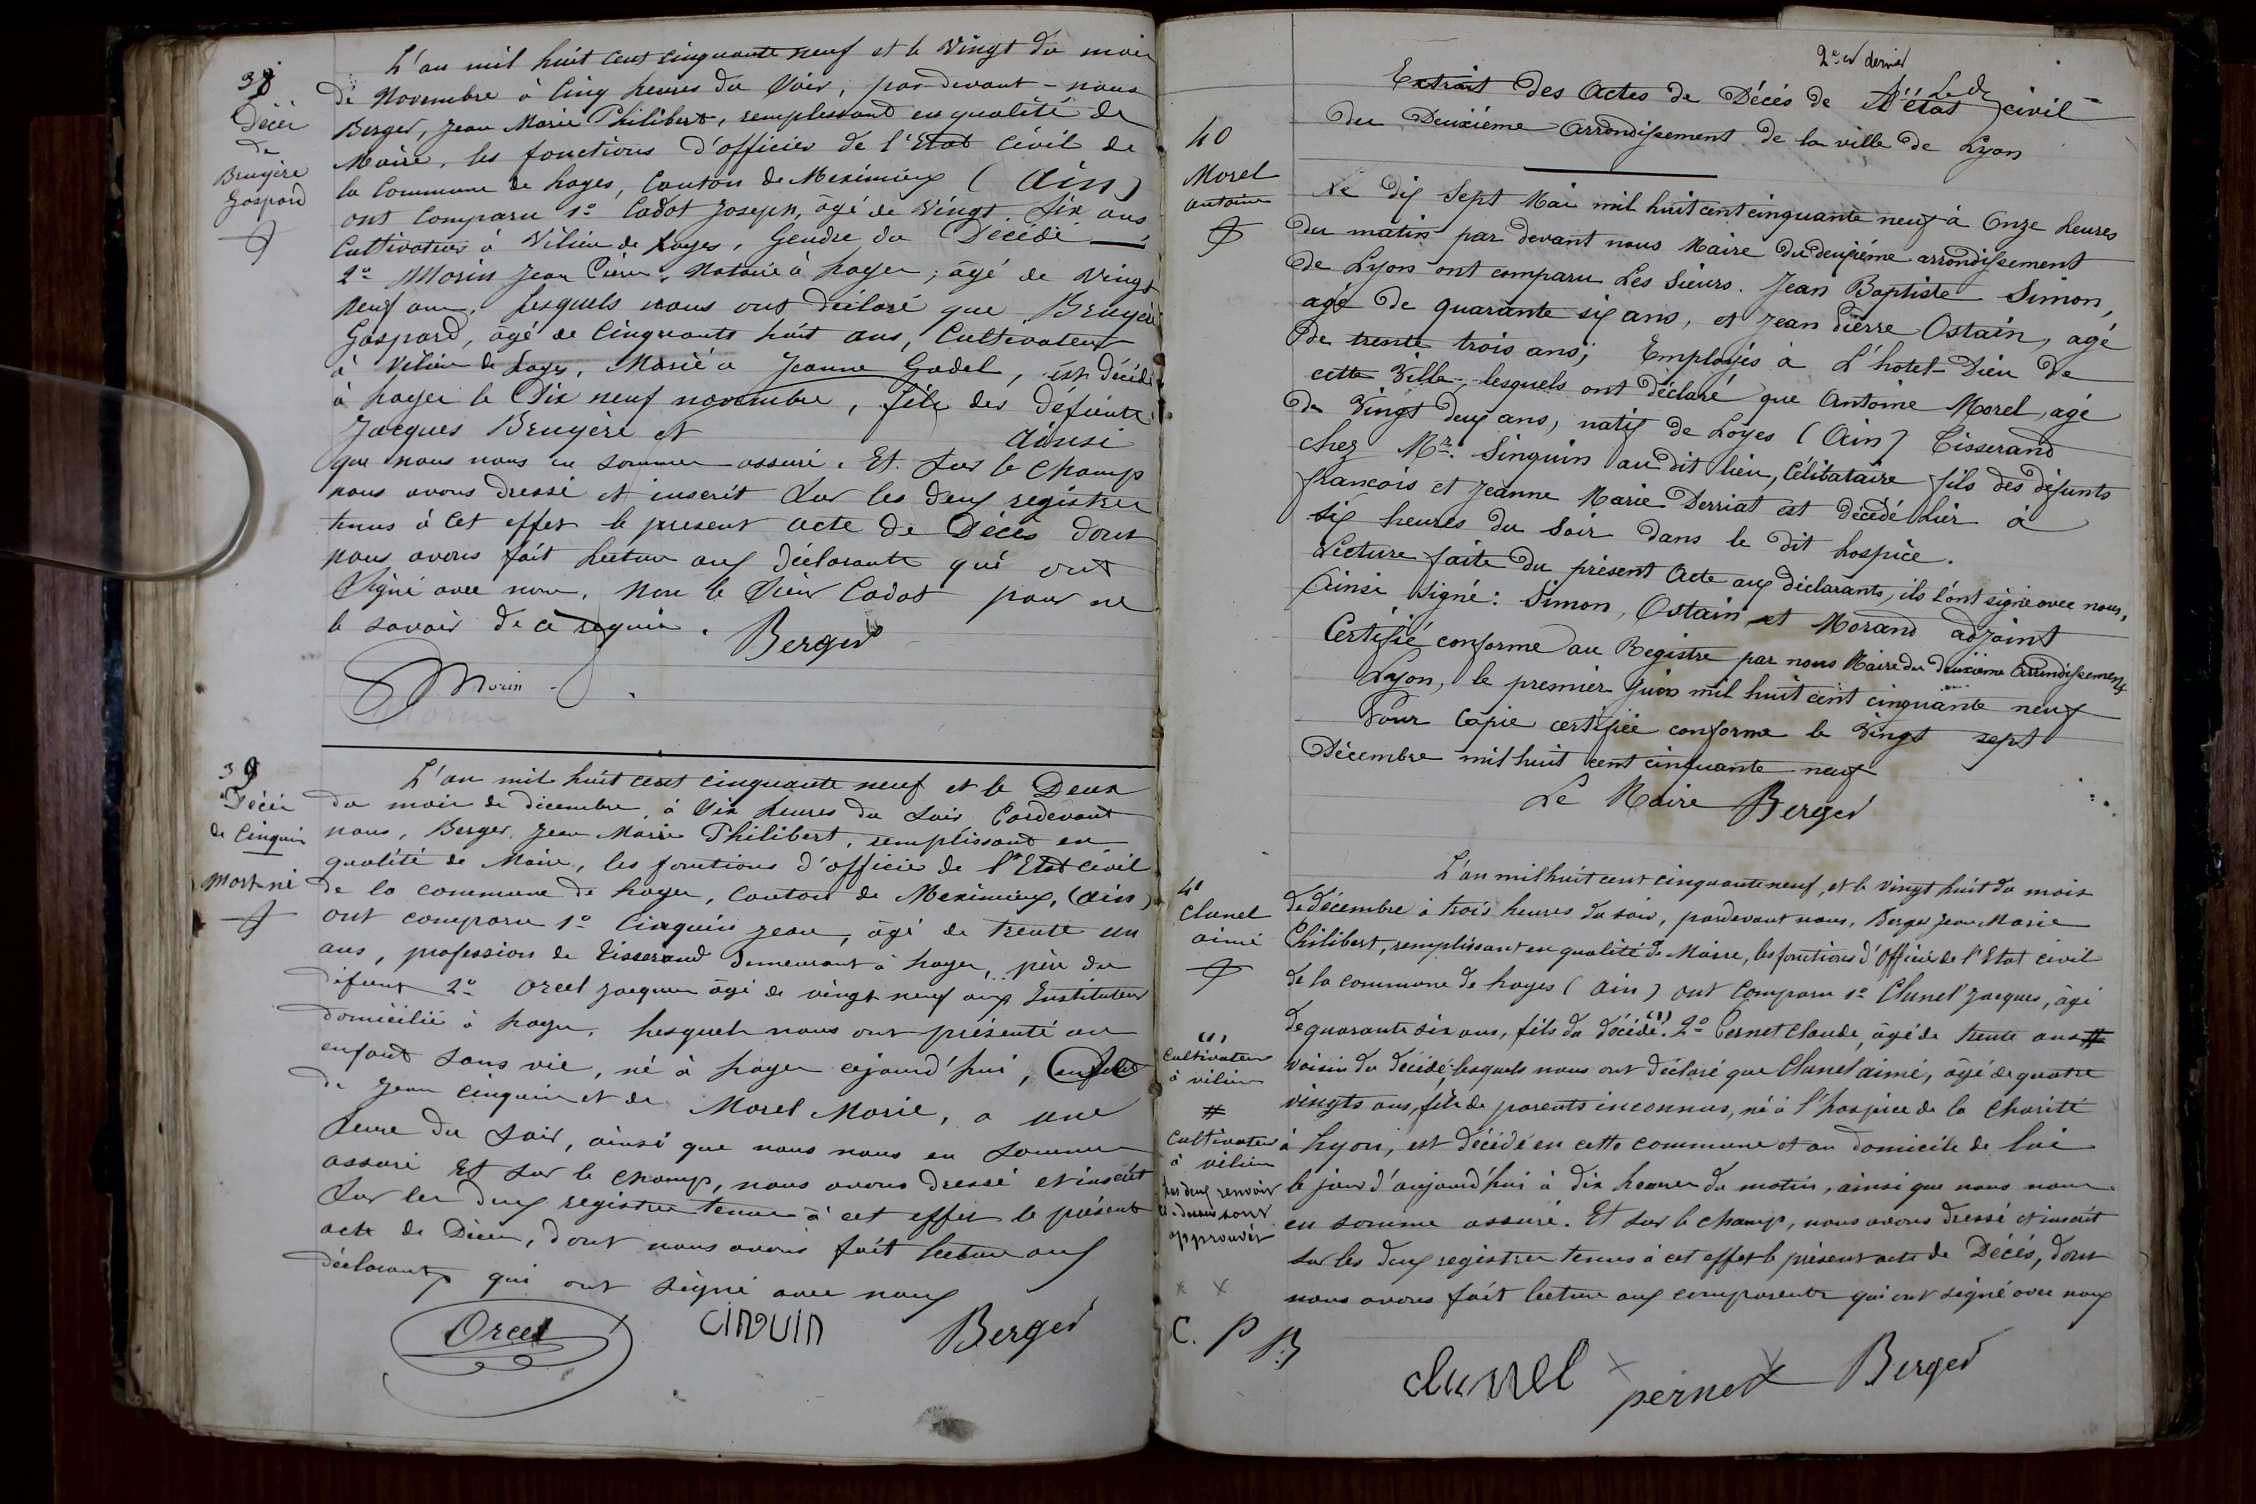 38
Décès
de
Bruyère
Gaspard
L'an mil huit cent cinquante neuf et le Vingt du mois
de Novembre à Cinq heures du Soir, par devant-nous
Berger, Jean Marie Philibert, remplissant en qualité de
Maire, les fonctions d'officier de l'Etat Civil de
la Commune de Loyes, Canton de Meximieux (Ain)
ont Comparu 1º Cadot Joseph, agé de Vingt Six ans
Cultivateur à Vilieu de Loyes, Gendre du Décédé
2º Morin Jean Pierre, Notaire à Loyes, âgé de Vingt
Neuf ans, lesquels nous ont déclaré que Bruyère
Gaspard, âgé de Cinquante huit ans, Cultivateur
à Vilieu de Loyes, Marié à Jeanne Gadel, est décédé
à Loyes le Dix neuf novembre, fils des défunts
Jacques Bruyère et Ainsi
que nous nous en sommes assuré. Et Sur le Champ
nous avons dressé et inscrit Sur les deux registres
tenus à Cet effet le présent acte de Décès dont
nous avons fait lecture aux Déclarants qui ont
Signé avec nous, Non le Sieur Cadot pour ne
le savoir de ce requis. Berger
Morin
39
Décès
de Cinquin
Mort-né
L'an mil huit cent cinquante neuf et le Deux
du mois de décembre à Six heures du Soir Pardevant
nous, Berger, Jean Marie Philibert, remplissant en
qualité de Maire, les fonctions d'officier de l'Etat Civil
de la commune de Loyes, Canton de Meximieux, (Ain)
ont comparu 1º Cinquin Jean, âgé de trente un
ans, profession de Tisserand demeurant à Loyes, père du
défunt 2º Orcel Jacques âgé de vingt neuf ans Instituteur
domicilié à Loyes, Lesquels nous ont présenté un
enfant sans vie, né à Loyes cejourd'hui,
de Jean Cinquin et de Morel Marie, a une
heure du Soir, ainsi que nous nous en Sommes
assuré Et sur le champ, nous avons dressé et inscrit
Sur les deux registres tenus à cet effet le présent
acte de Décès, dont nous avons fait lecture aux
déclarants qui ont signé avec nous
Orcel cinquin Berger
40
Morel
antoine
2e et dernier
Extrait des Actes de Décès de L'état civil
du Deuxième Arrondissement de la ville de Lyon
Le dix Sept Mai mil huit cent cinquante neuf à Onze heures
du matin par devant nous Maire du deuxième arrondissement
de Lyon ont comparu Les Sieurs. Jean Baptiste Simon,
agé de quarante six ans, et Jean Pierre Ostain, agé
de trente trois ans; Employés à L'hotel-Dieu de
cette Ville, lesquels ont déclaré que Antoine Morel, agé
de Vingt deux ans, natif de Loyes (Ain) Tisserand
chez Mr. Sinquin au dit lieu, Célibataire fils des défunts
françois et Jeanne Marie Derriat est décédé hier à
six heures du Soir dans le dit hospice.
Lecture faite du présent Acte aux déclarants, ils l'ont signé avec nous,
Ainsi Signé: Simon, Ostain et Morand adjoint
Certifié conforme au Registre par nous Maire du deuxième Arrondissement
Lyon, le premier Juin mil huit cent cinquante neuf
Pour Copie certifiée conforme le Vingt sept
Décembre mil huit cent cinquante neuf
Le Maire Berger
41
Clunel
aimé
L'an mil huit cent cinquante neuf, et le vingt huit du mois
de décembre à trois heures du soir, pardevant nous, Berger Jean Marie
Philibert, remplissant en qualité de Maire, les fonctions d'Officier de l'Etat civil
de la commune de Loyes (Ain) ont Comparu 1º Clunel Jacques, âgé
de quarante six ans, fils du décédé (1). 2º Pernet Claude, âgé de trente ans #
voisin du décédé, lesquels nous ont déclaré que Clunel aimé, âgé de quatre
vingts ans, fils de parents inconnus, né à l'hospice de la Charité
à Lyon, est décédé en cette commune et au domicile de lui
le jour d'aujourd'hui à dix heures du matin, ainsi que nous nous
en somme assuré. Et sur le champ, nous avons dressé et inscrit
sur les deux registres tenus à cet effet le présent acte de Décès, dont
nous avons fait lecture aux comparents qui ont signé avec nous
(1)
cultivateur
à vilieu
#
cultivateur
à vilieu
les deux renvois
ci-dessus sont
approuvés
x x
C. P B
clunel pernet Berger